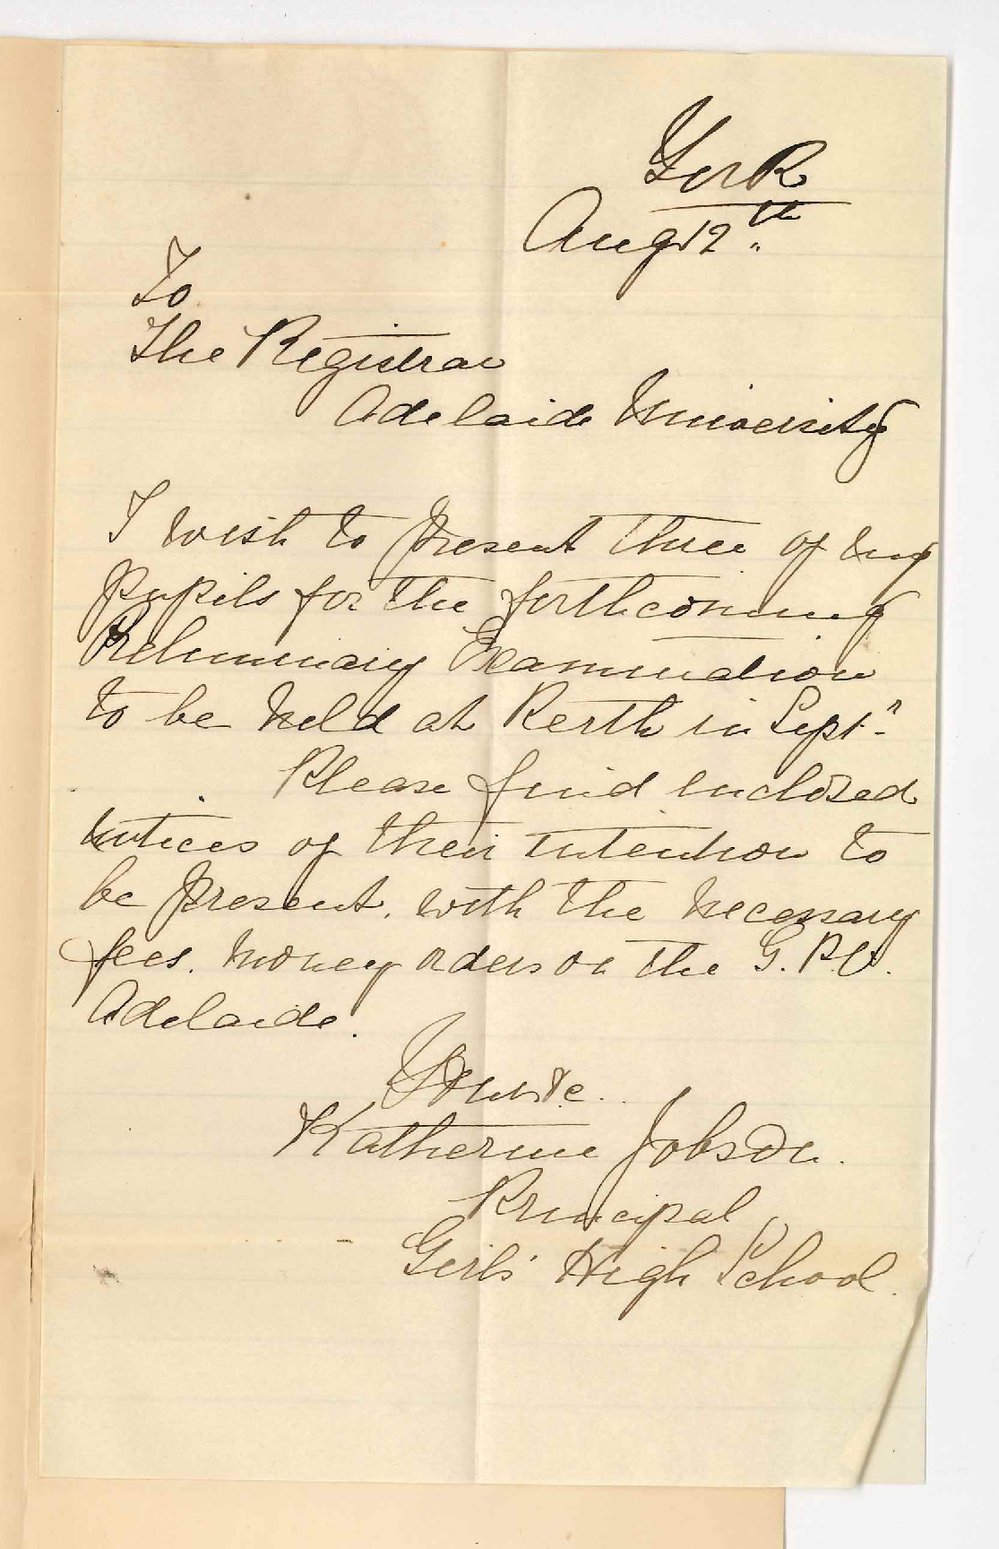 York
Aug 12th
To
The Registrar
Adelaide University
I wish to present three of my
pupils for the forthcoming
Preliminary Examination
to be held at Perth in Sept.r
Please find enclosed
notices of their intention to
be present, with the necessary
fees. money orders on the G.P.O.
Adelaide.
Yours &c.
Katherine Jobson.
Principal,
Girls' High School.